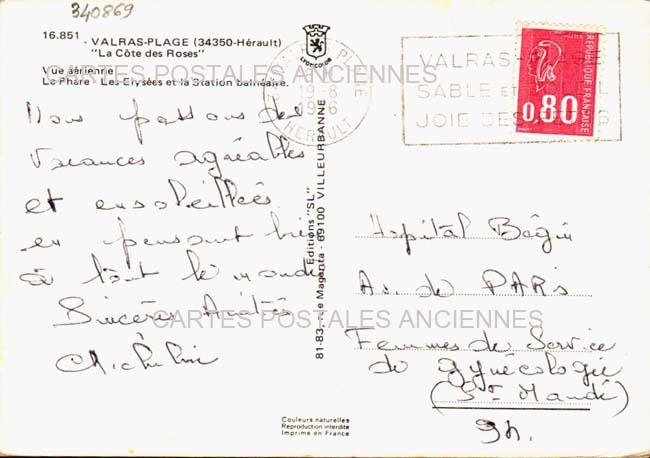 340869
16.851 - VALRAS-PLAGE (34350-Hérault)
"La Côte des Roses"
Vue aérienne
Le Phare - Les Elysées et la Station balnéaire.
CARTES POSTALES ANCIENNES
Nous passons des
vacances agréables
et ensoleillées
en pensant bien
à tout le monde
Sincères Amitiés
Micheline
CARTES POSTALES ANCIENNES
LYONCOLOR
19-8
HERAULT
VALRAS-
SABLE et
JOIE DES
REPUBLIQUE FRANÇAISE
0,80
Editions "SL"
81-83, rue Magenta - 69100 VILLEURBANNE
Hopital Bégin
Av. de PARIS
Femmes de Service
de gynécologie
(St Mandé)
94.
Couleurs naturelles
Reproduction interdite
Imprimé en France